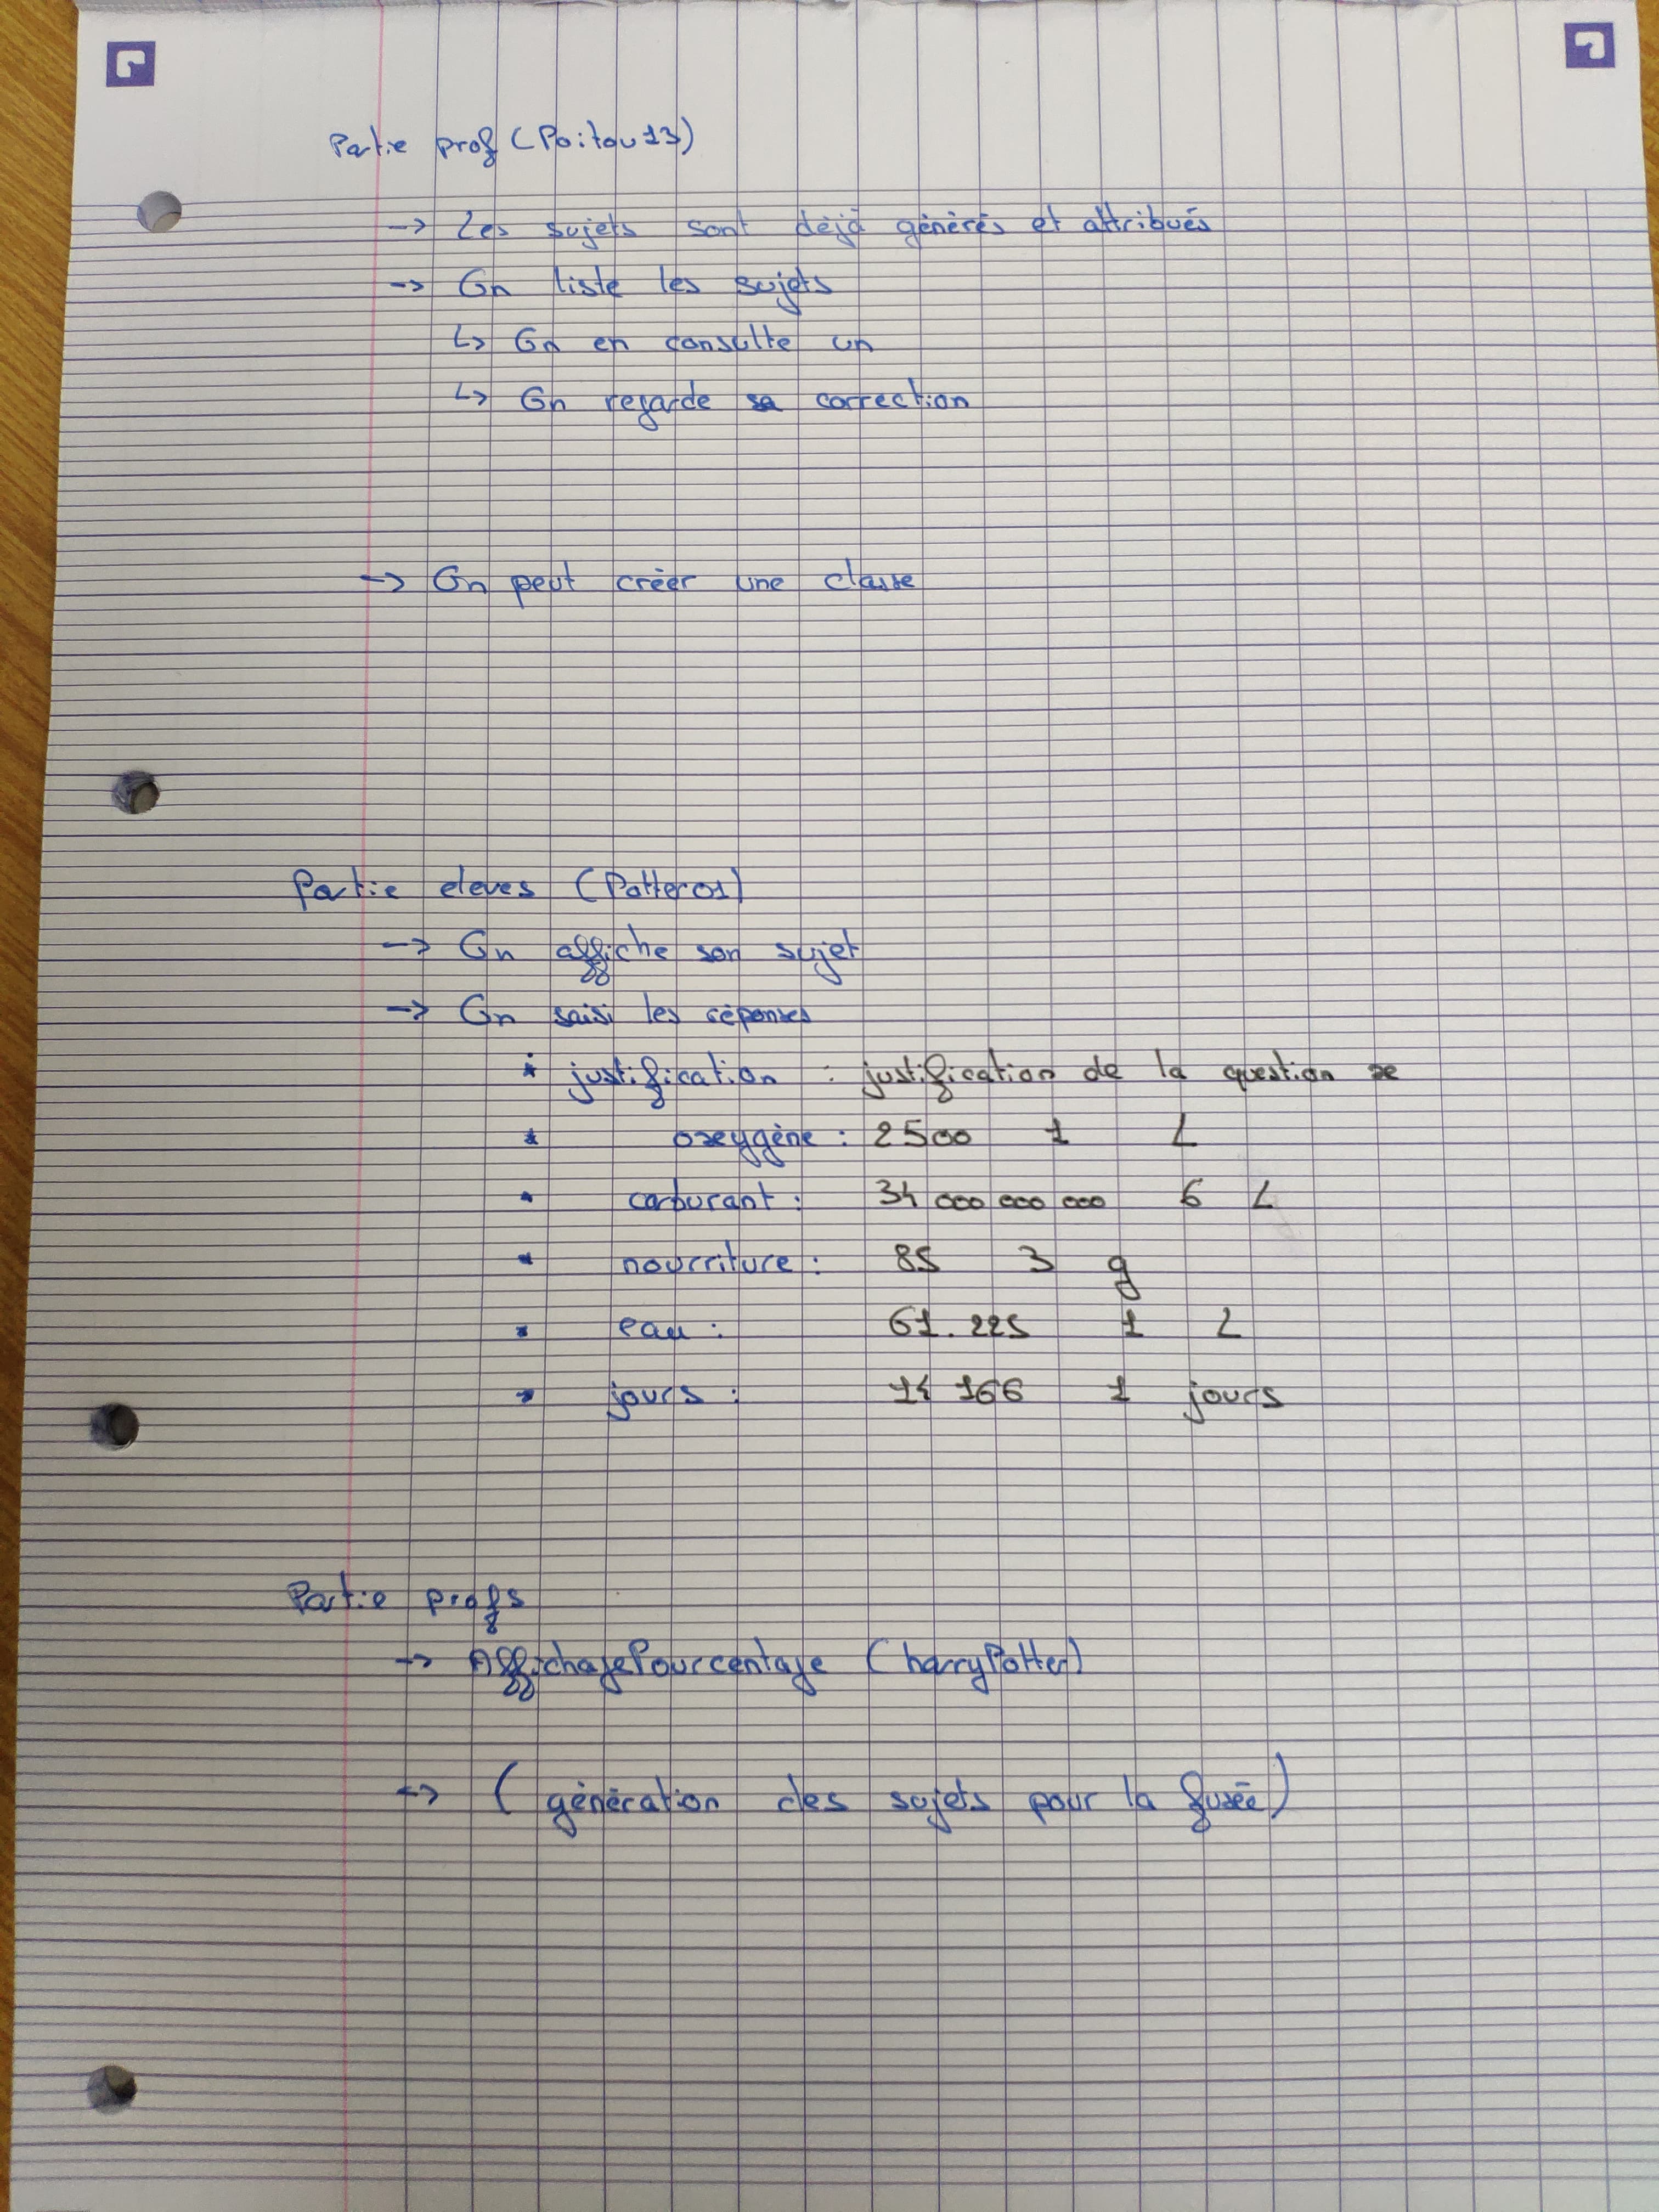 Partie prof (Poitou13)
-> Les sujets sont déjà générés et attribués
-> On liste les sujets
↳ On en consulte un
↳ On regarde sa correction
-> On peut créer une classe
Partie eleves (Potter01)
-> On affiche son sujet
-> On saisi les réponses
* justification : justification de la question x
* oxygène : 2500 1 L
* carburant : 34 000 000 000 6 L
* nourriture : 85 3 g
* eau : 61.225 1 L
* jours : 14 166 1 jours
Partie profs
-> AffichagePourcentage (harryPotter)
-> (génération des sujets pour la fusée)